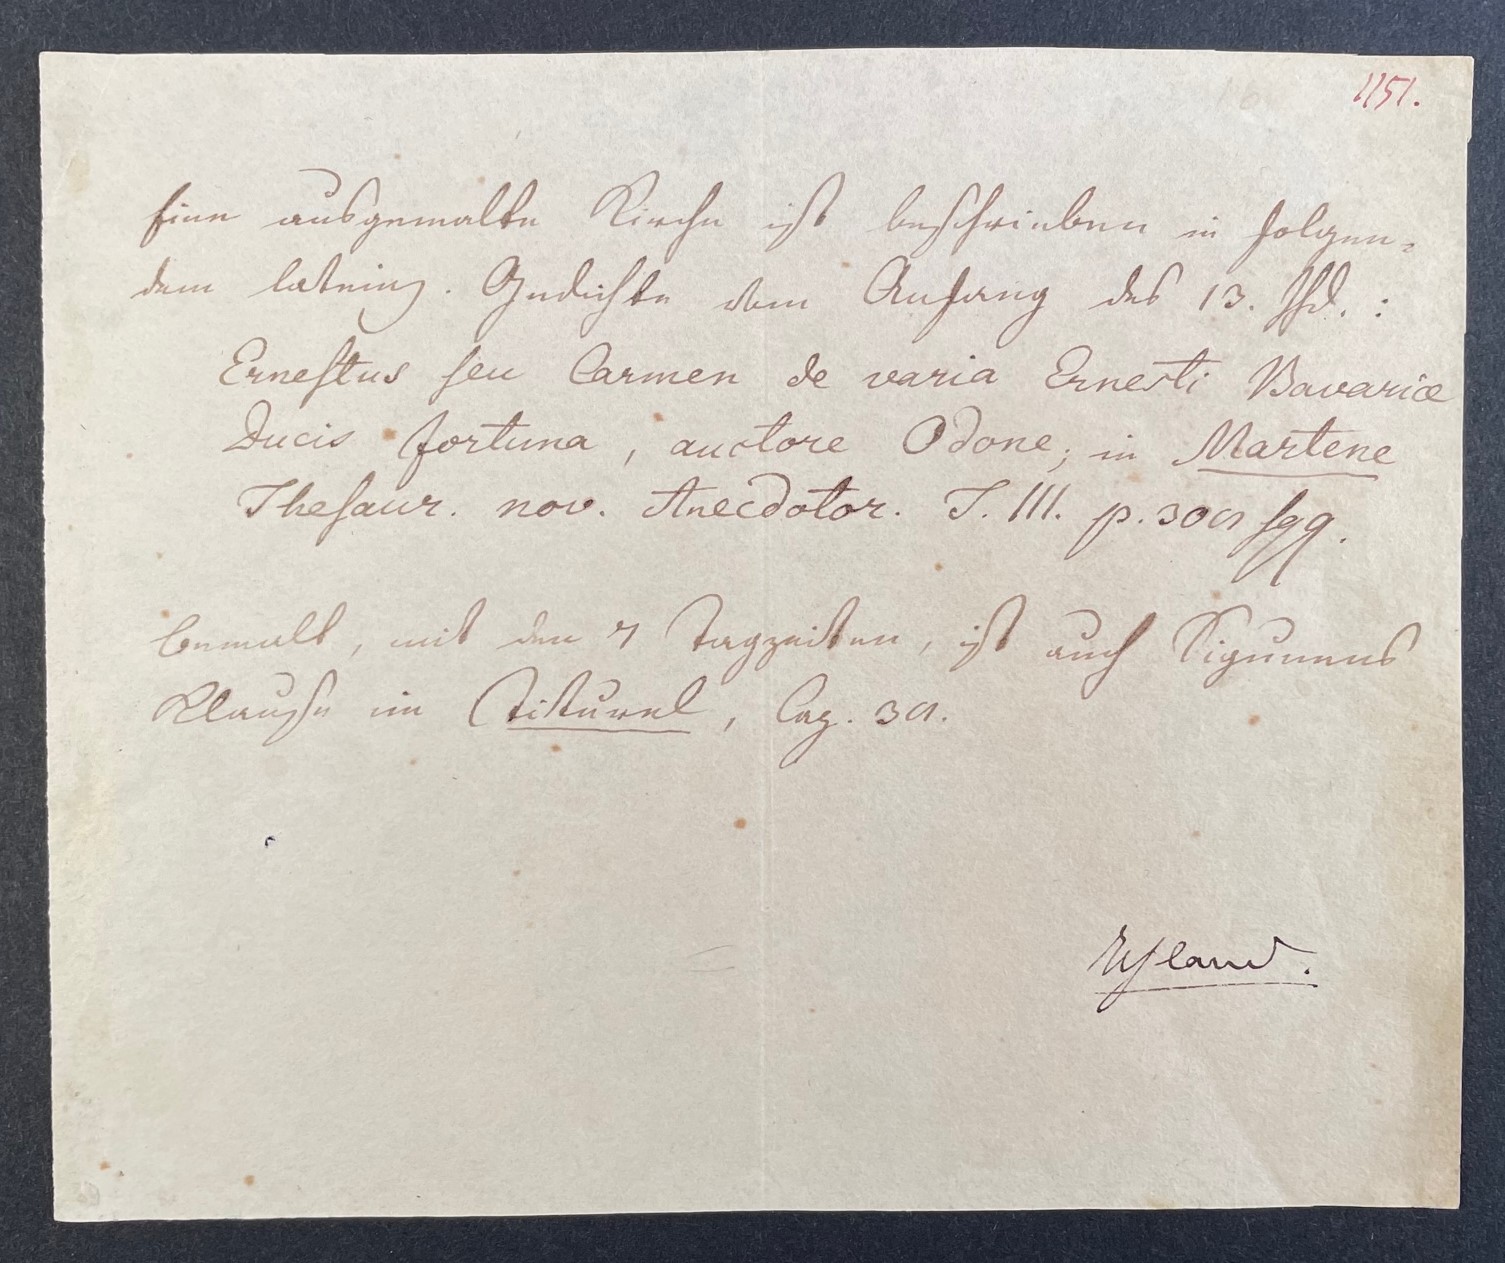 1151.
Eine ausgemalte Kirche ist beschrieben in folgen-
dem latein. Gedichte vom Anfang des 13. Jhd. :
Erneſtus ſeu Carmen de varia Ernesti Bavariæ
Ducis fortuna, auctore Odone; in Martene
Theſaur. nov. Anecdotor. T. III. p. ſqq.
Bemalt, mit den 7 Tagzeiten, ist auch Sigunens
Klause im Titurel, Cap.
Uhland.